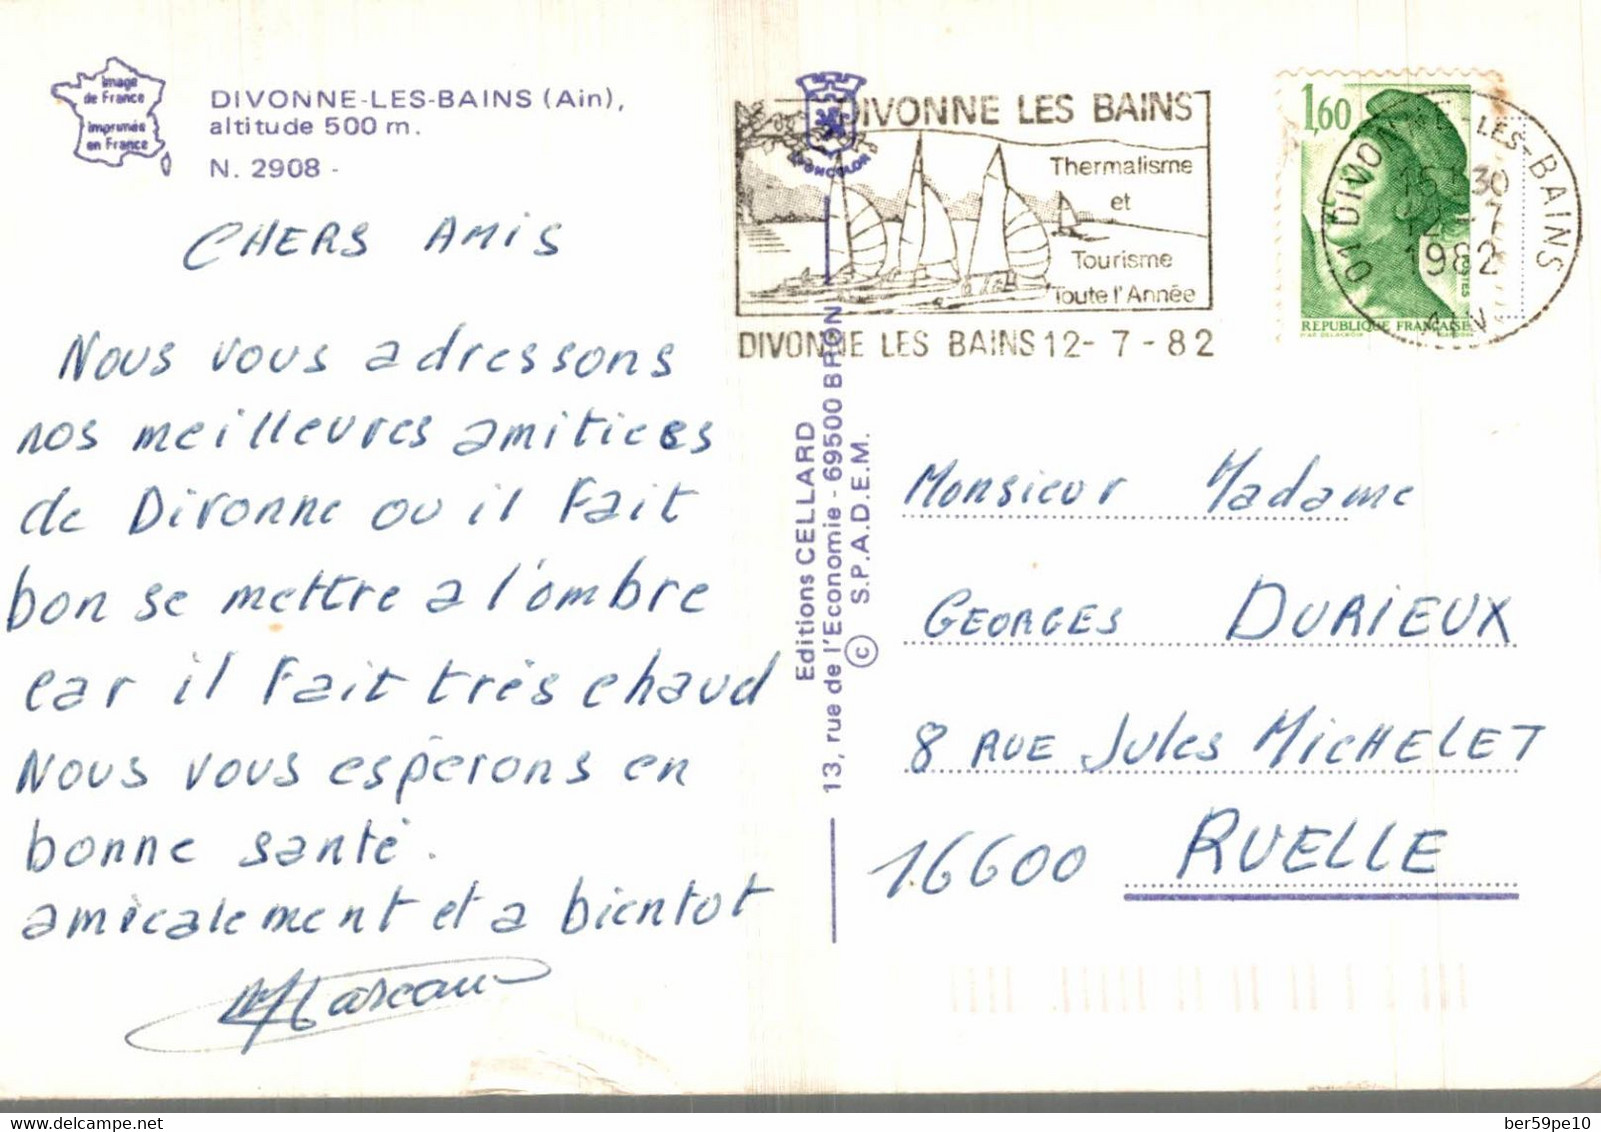 Image
de France
imprimée
en France
DIVONNE-LES-BAINS (Ain),
altitude 500 m.
N. 2908 -
CHERS AMIS
Nous vous adressons
nos meilleures amitiees
de Divonne ou il Fait
bon se mettre a l'ombre
car il Fait très chaud
Nous vous espèrons en
bonne santé.
amicalement et a bientot
Editions CELLARD
13, rue de l'Economie - 69500 BRON
© S.P.A.D.E.M.
DIVONNE LES BAINS
Thermalisme
et
Tourisme
Toute l'Année
DIVONNE LES BAINS 12-7-82
1,60
POSTES
REPUBLIQUE FRANÇAISE
01 DIVONNE-LES-BAINS
15 H 30
12-7
1982
AIN
Monsieur Madame
GEORGES DURIEUX
8 RUE Jules MICHELET
16600 RUELLE
delcampe.net
ber59pe10